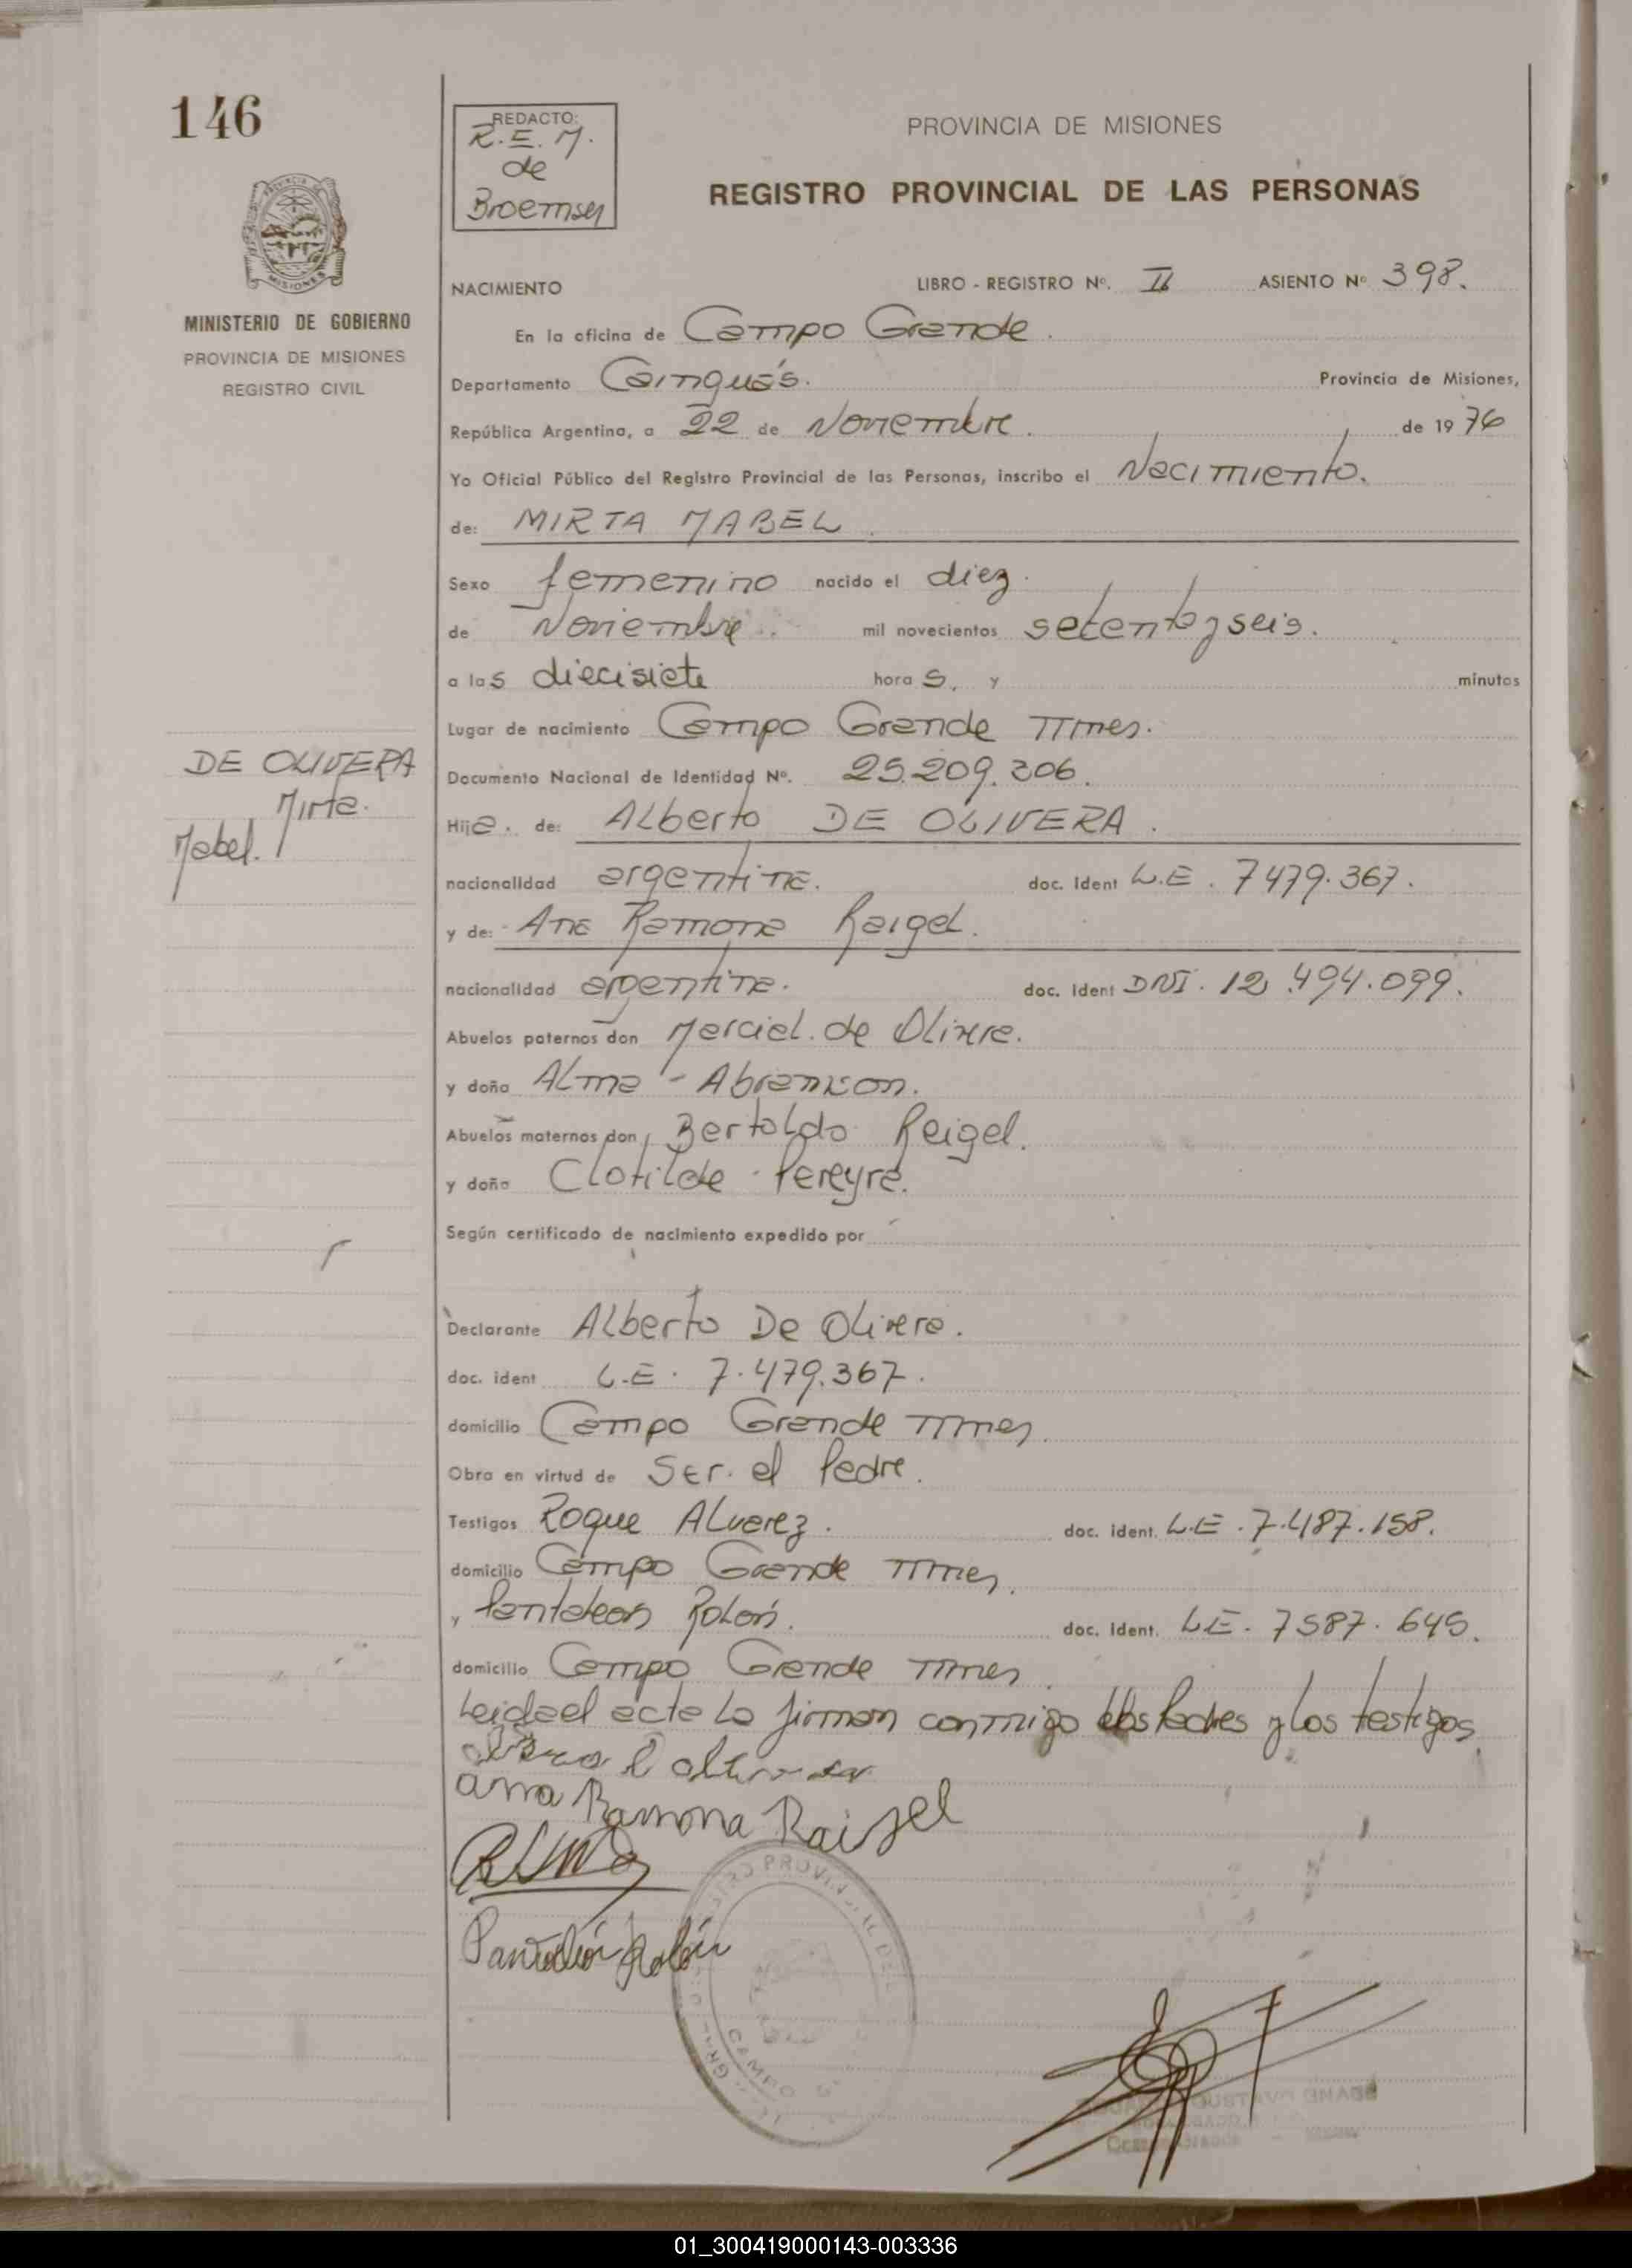 146
REDACTO:
R.E.M.
de
Broemser
PROVINCIA DE MISIONES
REGISTRO PROVINCIAL DE LAS PERSONAS
MINISTERIO DE GOBIERNO
PROVINCIA DE MISIONES
REGISTRO CIVIL
NACIMIENTO LIBRO - REGISTRO Nº. II ASIENTO Nº 398.
En la oficina de Campo Grande.
Departamento Cainguás. Provincia de Misiones,
República Argentina, a 22 de Noviembre. de 1976
Yo Oficial Público del Registro Provincial de las Personas, inscribo el Nacimiento.
de: MIRTA MABEL
Sexo femenino nacido el diez
de Noviembre mil novecientos setenta y seis.
a las diecisiete horas, y minutos
Lugar de nacimiento Campo Grande Mnes.
DE OLIVERA
Mirta
Mabel.
Documento Nacional de Identidad Nº. 25.209.306.
Hija. de: Alberto DE OLIVERA.
nacionalidad argentina. doc. ident L.E. 7479.367.
y de: Ana Ramona Raigel.
nacionalidad argentina. doc. ident DNI. 12.494.099.
Abuelos paternos don Marcial de
y doña Alma
Abuelos maternos don Bertoldo Reigel.
y doña Clotilde Pereyra.
Según certificado de nacimiento expedido por
Declarante Alberto De Olivera.
doc. ident L.E. 7.479.367.
domicilio Campo Grande Mnes.
Obra en virtud de Ser el Padre.
Testigos Roque Alvarez. doc. ident. L.E. 7.487.158.
domicilio Campo Grande Mnes.
y Pantaleon Rolón. doc. ident. L.E. 7587.645.
domicilio Campo Grande Mnes
Leida el acta la firman conmigo los Padres y los testigos
ana Ramona Raigel
Pantaleón Rolón
CAMPO
01_300419000143-003336